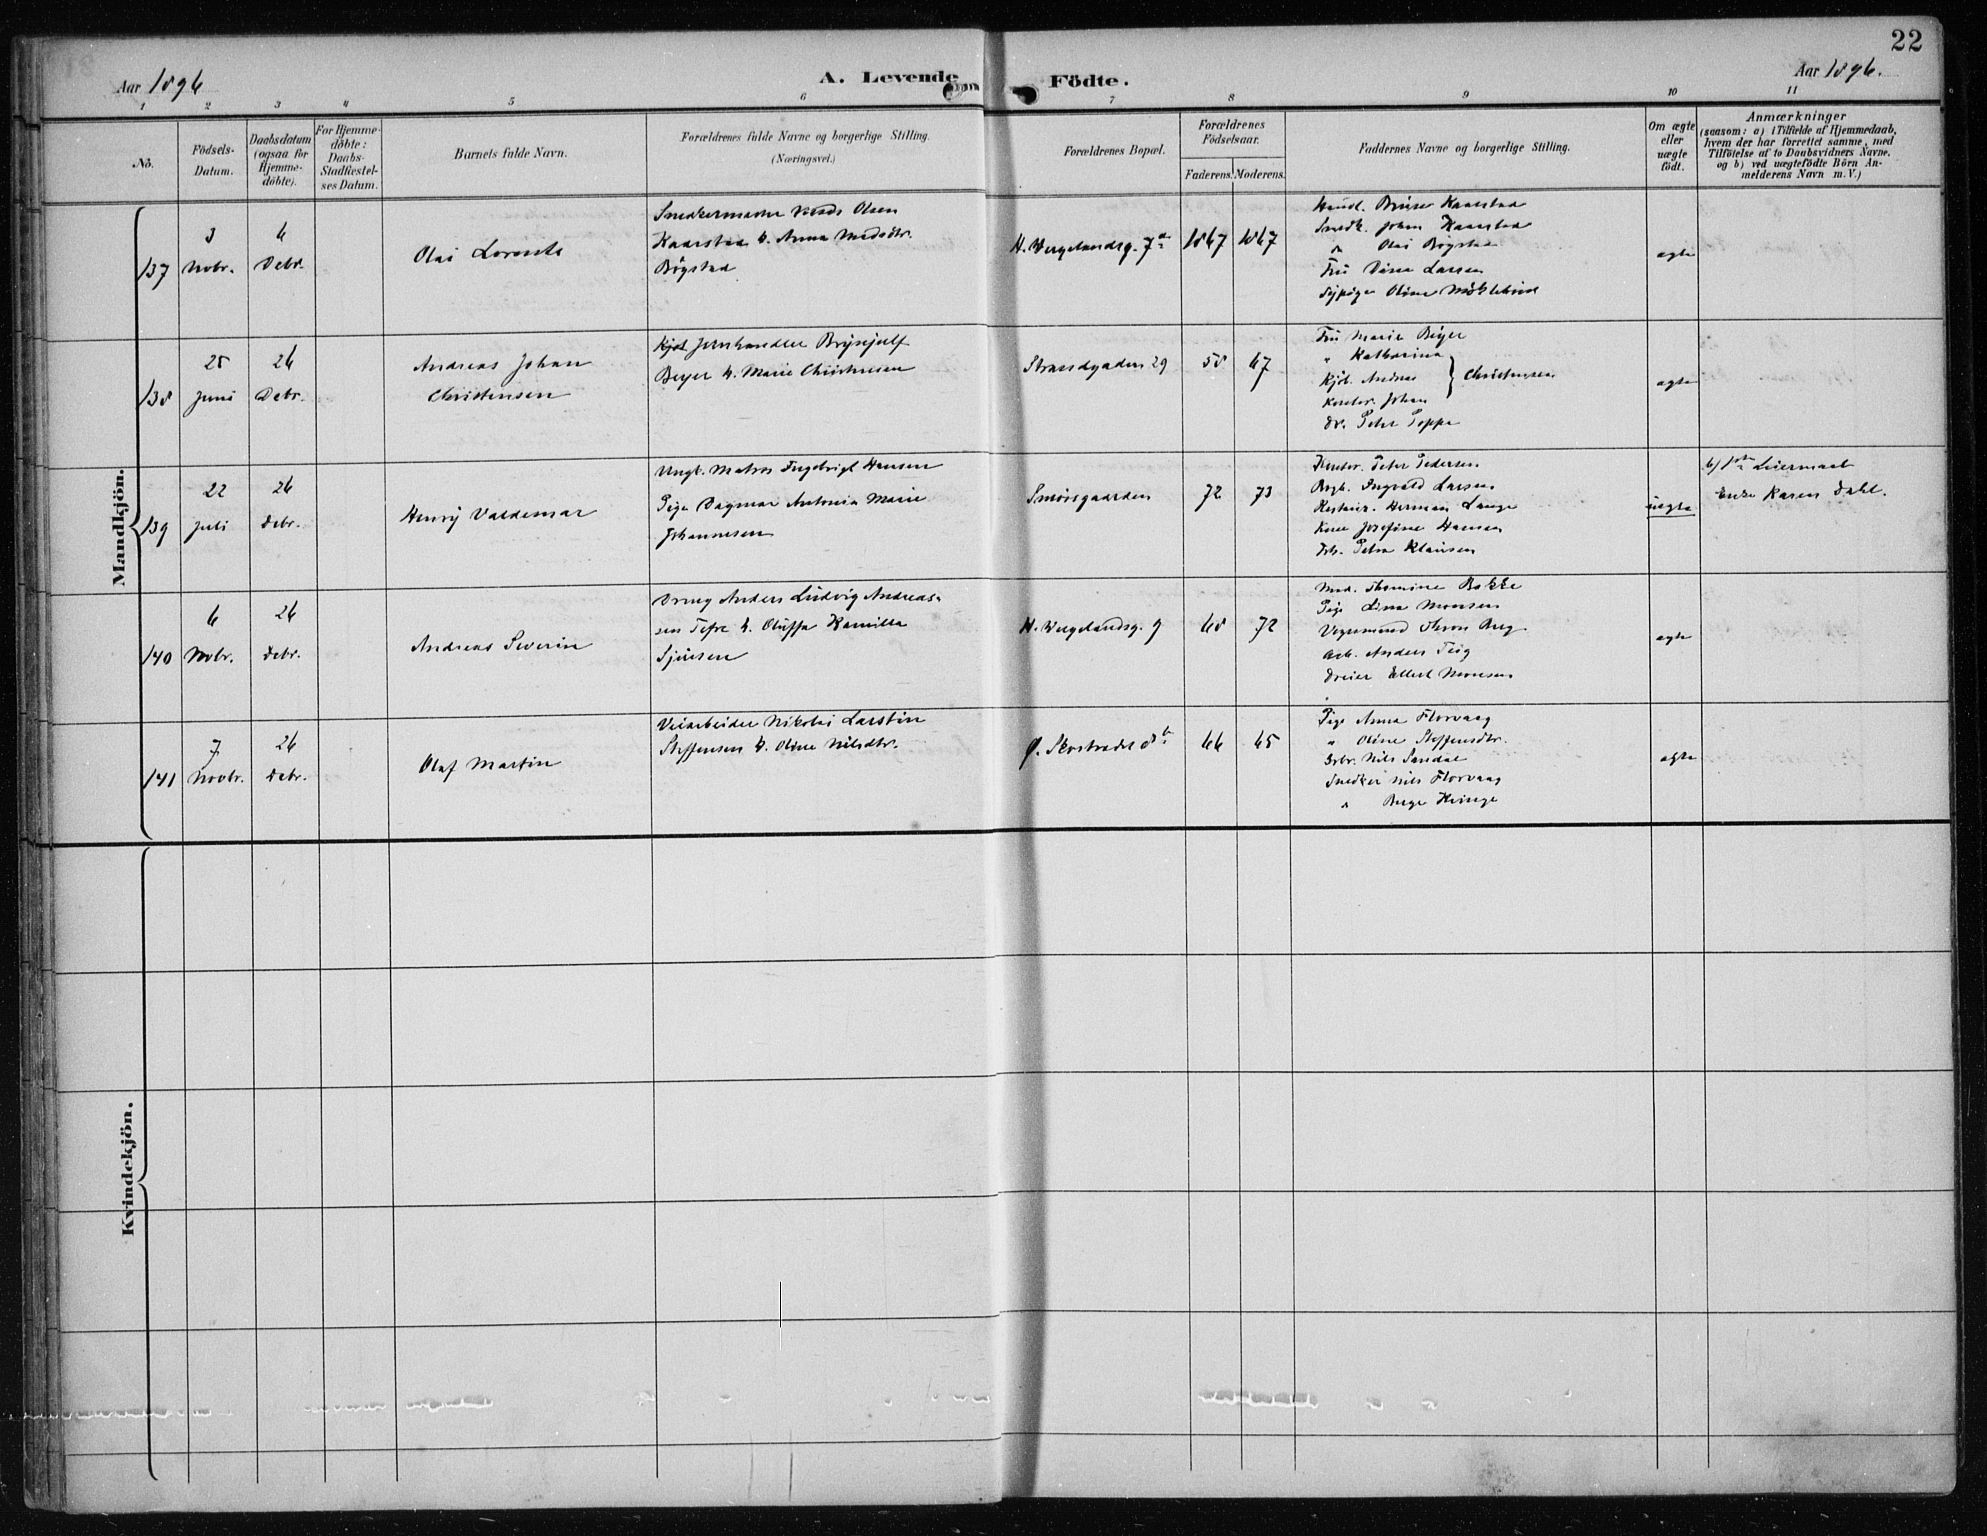 22
Aar 1896
A. Levende Födte.
Aar 1896.
1 2 3 4 5 6 7 8 9 10 11
No.
Födsels-
Datum.
Daabsdatum
(ogsaa för
Hjemme-
döbte).
For Hjemme-
döbte:
Daabs-
Stadfæstel-
ses Datum.
Barnets fulde Navn.
Forældrenes fulde Navne og borgerlige Stilling.
(Næringsvei.)
Forældrenes Bopæl.
Forældrenes
Födselsaar.
Faderens. Moderens.
Faddernes Navne og borgerlige Stilling.
Om ægte
eller
uægte
födt.
Anmærkninger
(saasom: a) i Tilfælde af Hjemmedaab,
hvem der har forrettet samme, med
Tilföielse af to Daabsvidners Navne.
og b) ved uægtefödte Börn An-
melderens Navn m. V.)
Mandkjön.
137
3
Nobr.
6
Debr.
Olai Lorents
Olsen
Kaarstad h. Anna Madsdtr.
Bögstad
H. Wergelandsg. 7a
1867 1867
Kaarstad
Snedk. Johan Kaarstad
" Olai Bögstad
Fru Larsen
Oline
ægte
138
25
Juni
26
Debr.
Andreas Johan
Christensen
Jernhandler Brynjulf
Beyer h. Marie Christensen
Strandgaden 29
58 67
Fru Marie Beyer
" Katharina
Kjöb. Andreas } Christensen
Kontor. Johan
Dr. Peter Poppe
ægte
139
22
Juli
26
Debr.
Henry Valdemar
Ungk. Matros Ingebrigt Hansen
Pige Dagmar Antonia Marie
Johannesen
Smörsgaarden
72 73
Kontor. Peter Pedersen
Ingvald Larsen
Herman Lange
Kone Josefine Hansen
Petra Klausen
uægte
b) Leiermaal
Enke Karen Dahl.
140
6
Nobr.
26
Debr.
Andreas Severin
Anders Ludvig Andreas-
sen h. Oluffa Kamilla
Sjursen
H. Wergelandsg. 9
68 72
Mad. Thomine Bakke
Pige Lina Monsen
Berg
Arb. Anders Teig
Dreier Ellert Monsen
ægte
141
7
Novbr.
26
Debr.
Olaf Martin
Veiarbeider Nikolai
Steffensen h. Oline Nilsdtr.
Ø. Skostredet 8b
66 65
Pige Anna Florvaag
" Oline Steffensdtr.
Nils Sandal
Snedker Nils Florvaag
" Berge
ægte
Kvindekjön.